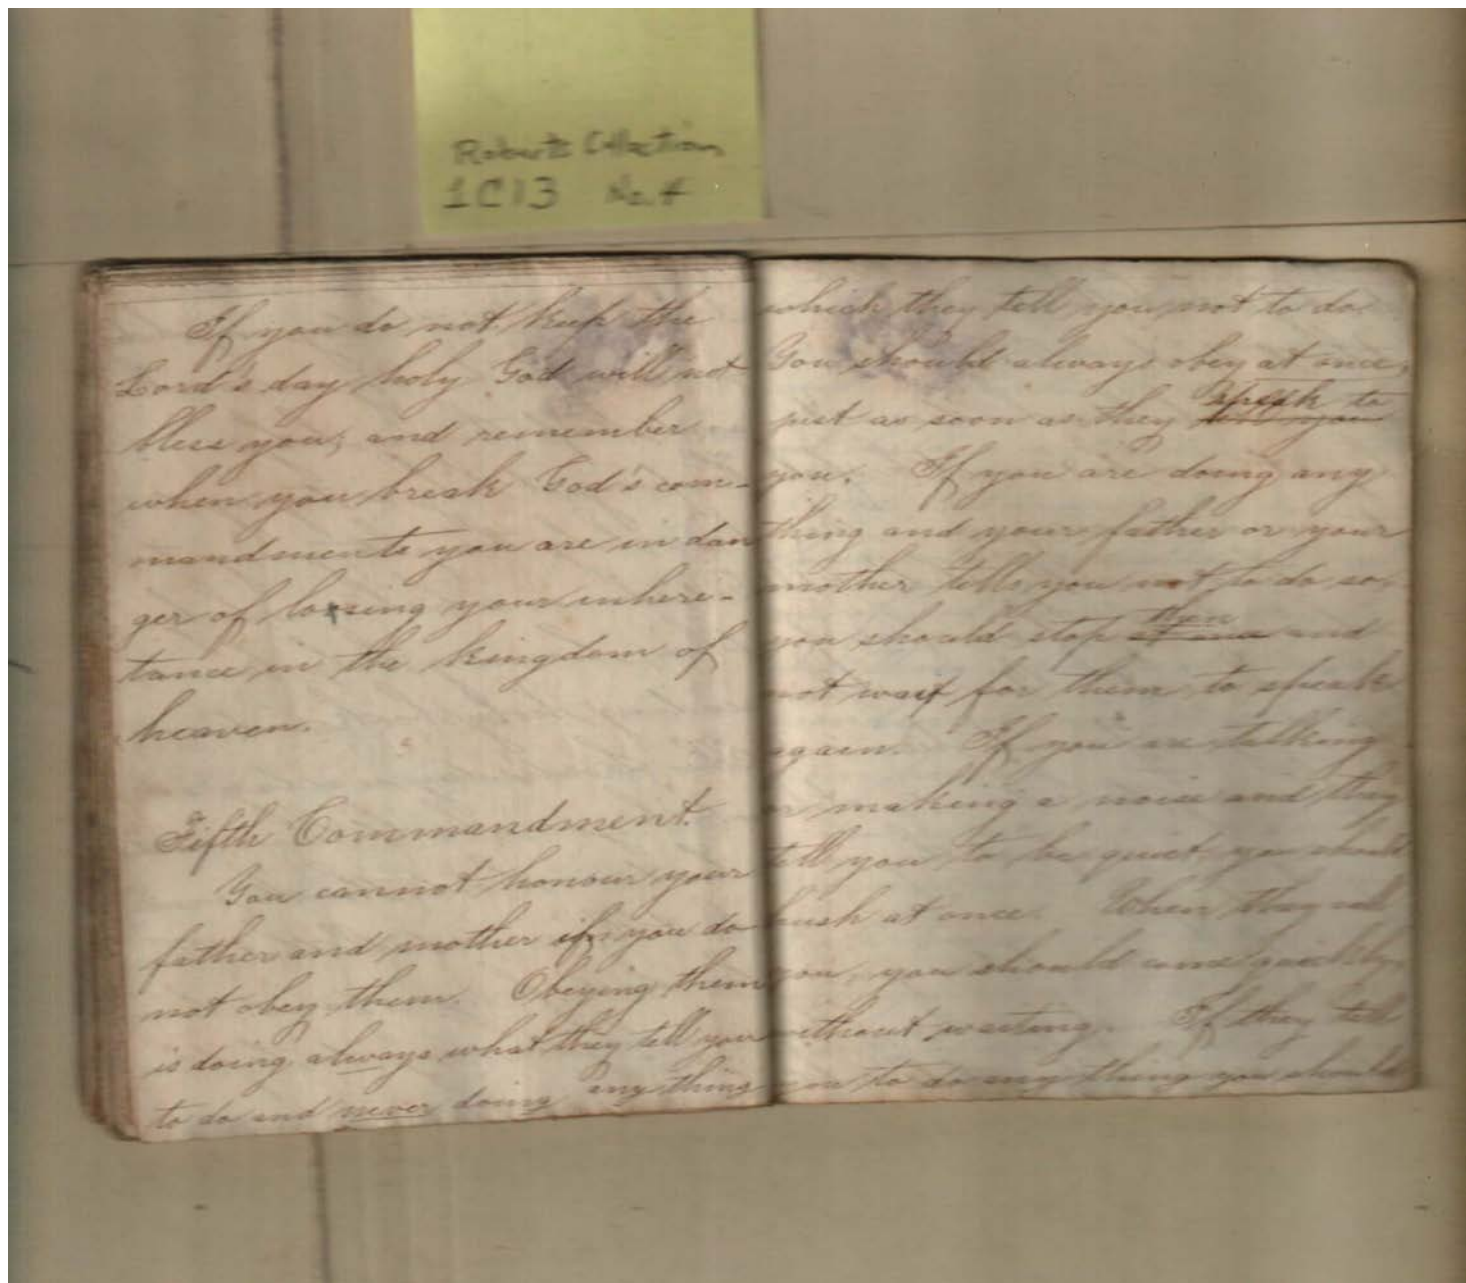 Roberts Collection
1C13 No. 4
If you do not keep the
Lord's day holy God will not
bless you, and remember
when you break God's com-
mandments you are in dan
ger of loosing your inheri-
tance in the kingdom of
heaven.
Fifth Commandment.
You cannot honour your
father and mother if you do
not obey them. Obeying them
is doing always what they tell you
to do and never doing any thing
which they tell you not to do
You should always obey at once,
just as soon as they speak to
you. If you are doing any
thing and your father or your
mother tells you not to do so,
you should stop then and
not wait for them to speak
again. If you are talking
or making a noise and they
tell you to be quiet you should
hush at once. When they call
you, you should come quickly,
without waiting. If they tell
you to do any thing you should